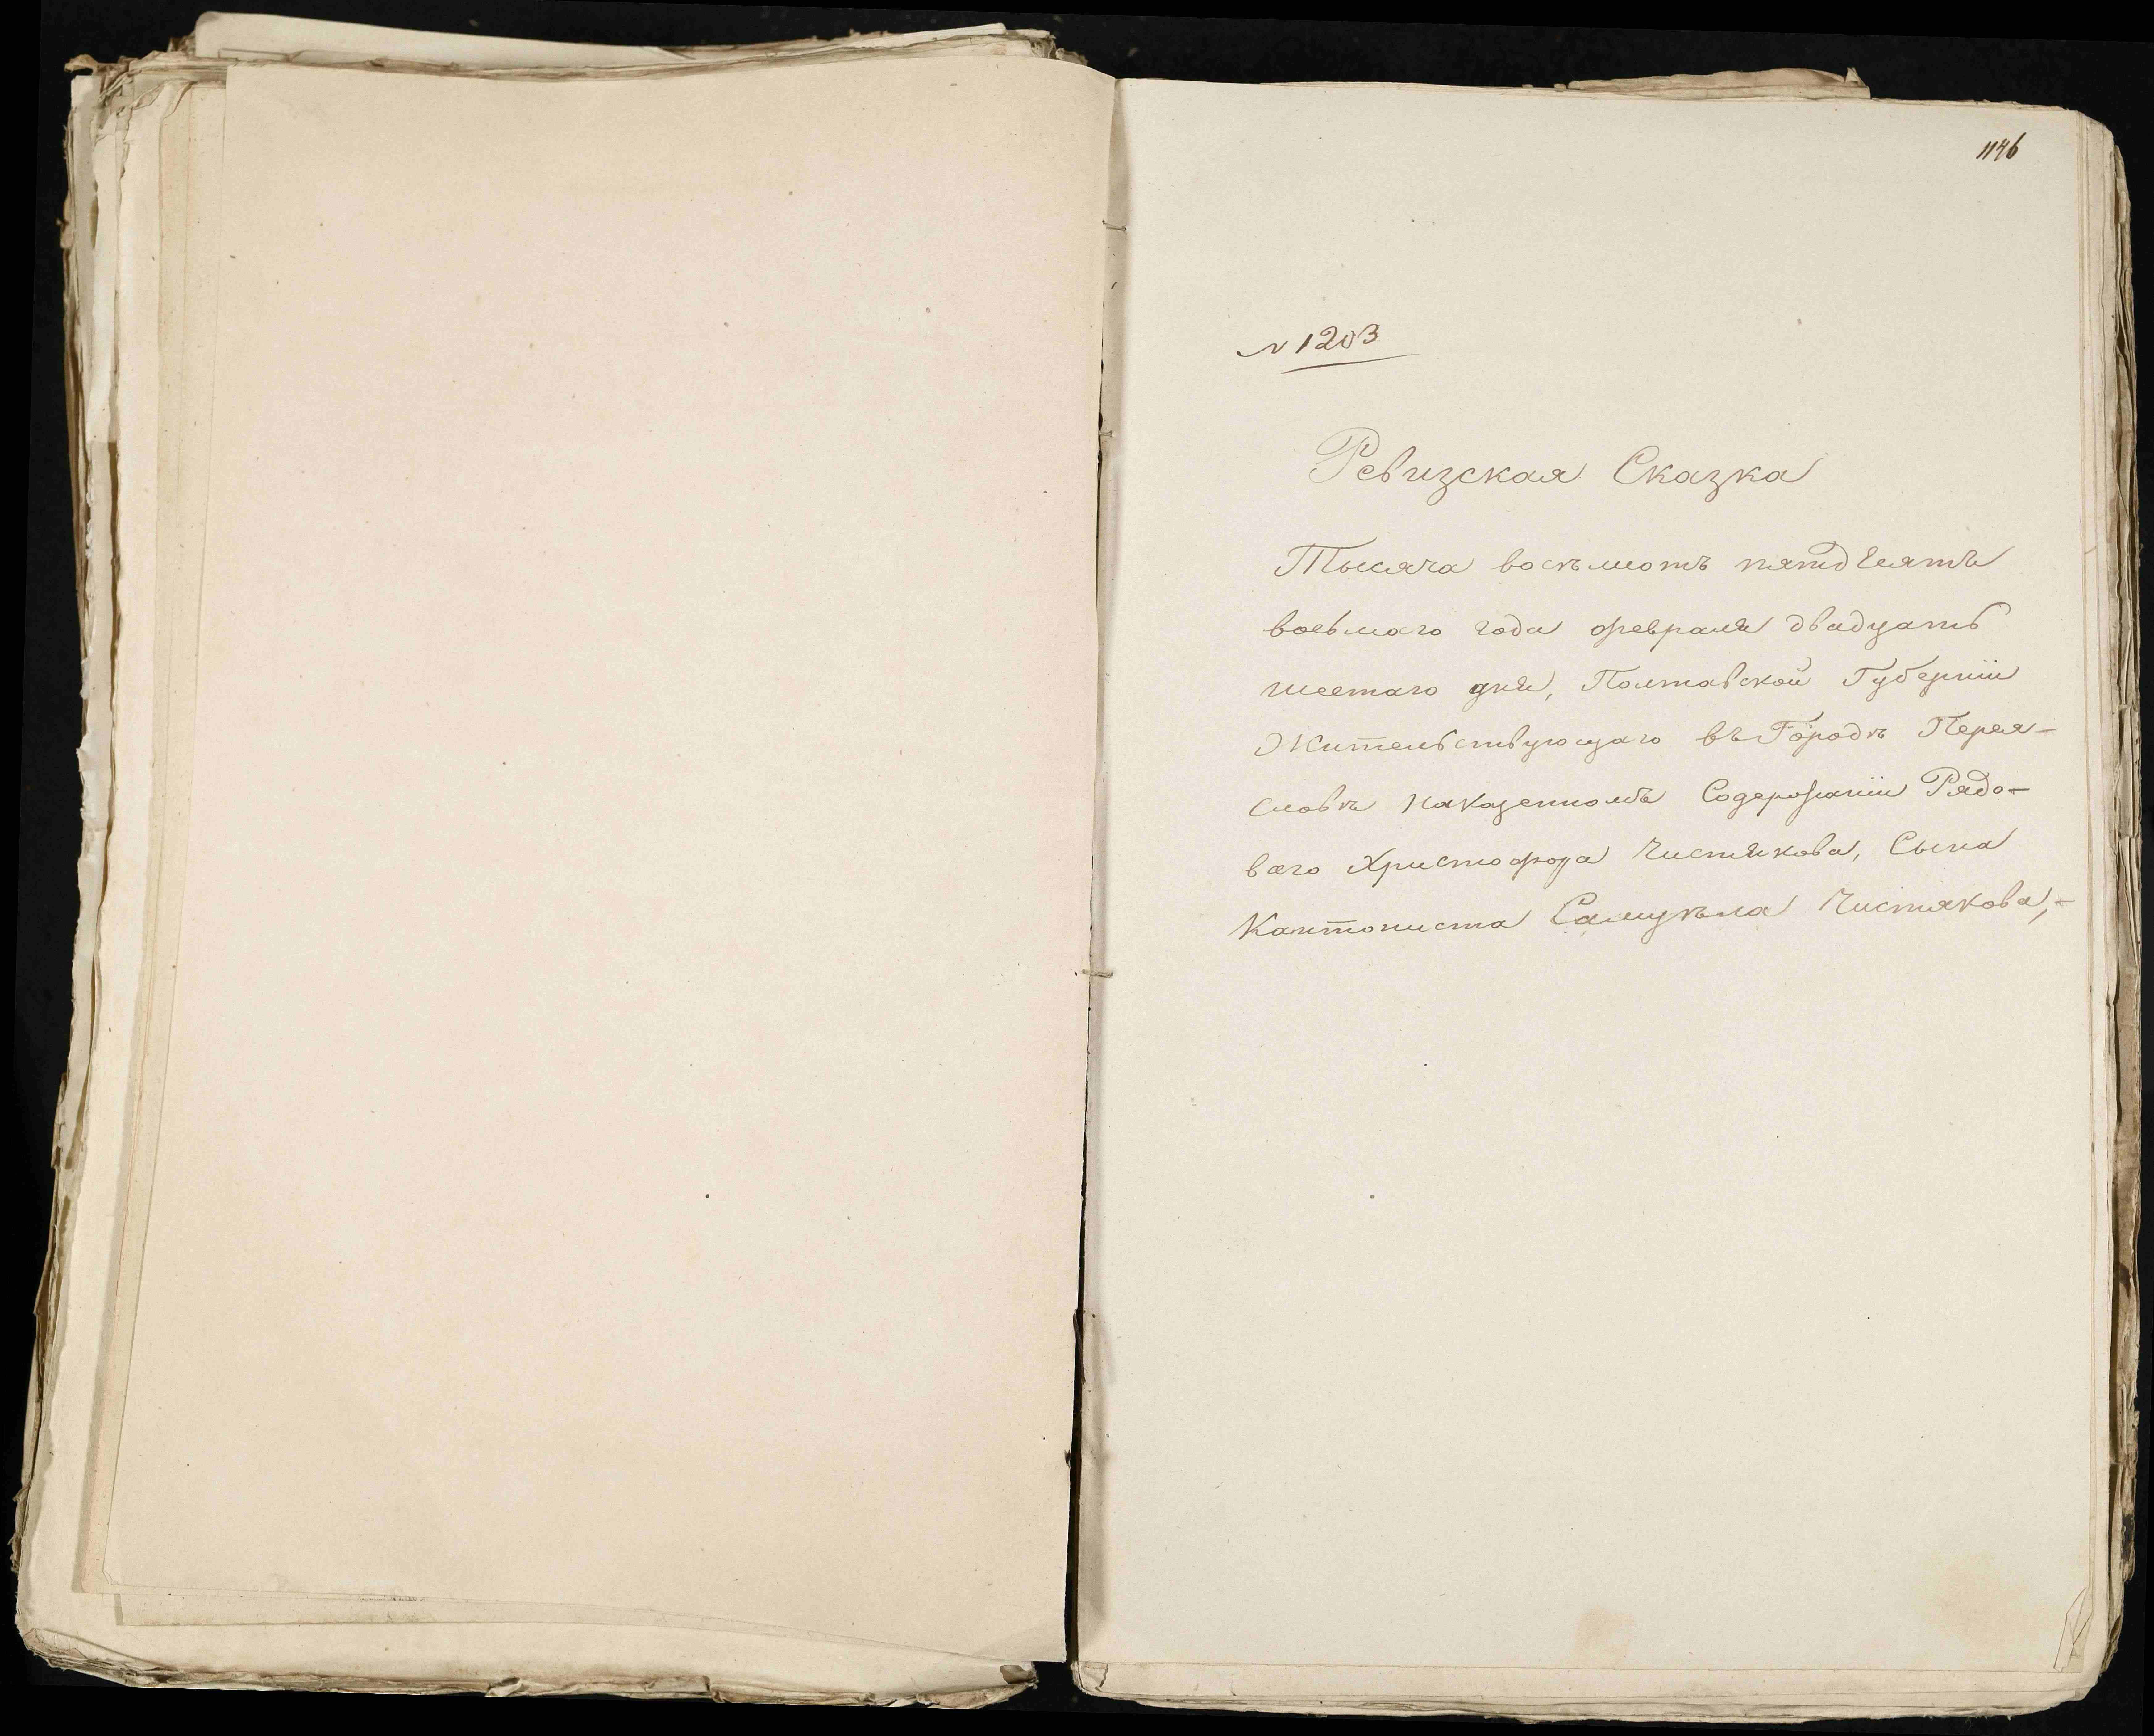 1146
№ 1203
Ревизская Сказка
Тысяча восъмотъ пятдесятъ
восьмаго года февраля двадцать
шестаго дня, Полтавской Губерніи
Жительствующаго въ Городѣ Перея-
словѣ на казенномъ Содержаніи Рядо-
ваго Христофора Чистякова, Сына
Кантониста Самуѣла Чистякова,-